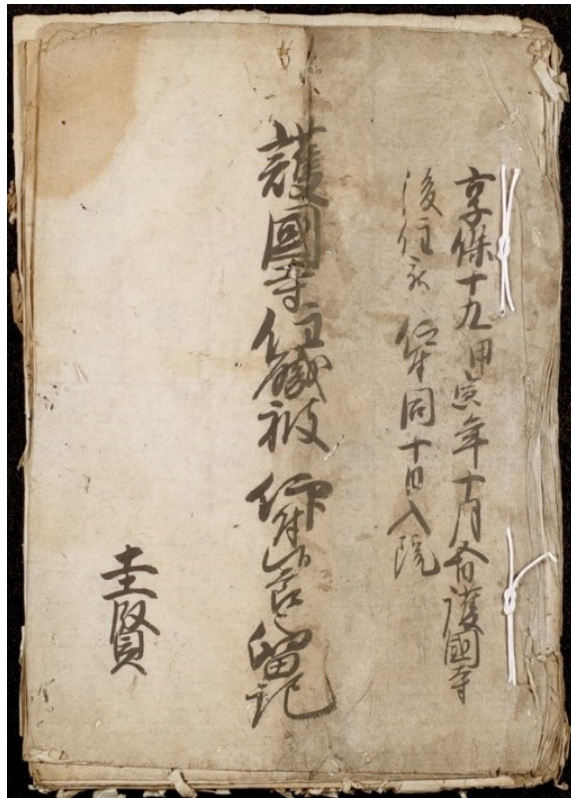 享保十九甲寅年十月護國寺
後住被 仰付同十日入院
護國寺住職被 仰付之留記
圭賢